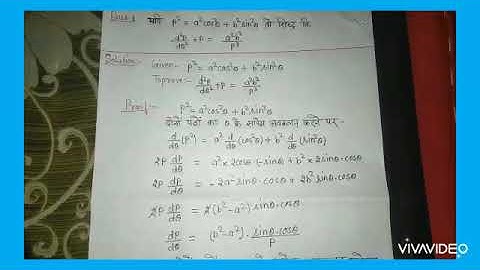 यदि P² = a²cosθ + b²sin²θ तो सिद्ध कि
d²P/dθ² + P = a²b²/P³
Solution:- Given:- P² = a²cos²θ + b²sin²θ
To prove:- d²P/dθ² + P = a²b²/P³
Proof:- P² = a²cos²θ + b²sin²θ
दोनों पक्षों का θ के सापेक्ष अवकलन करने पर-
d/dθ (P²) = a² d/dθ (cos²θ) + b² d/dθ (sin²θ)
2P dP/dθ = a² × 2cosθ (-sinθ) + b² × 2sinθ·cosθ
2P dP/dθ = -2a² sinθ·cosθ + 2b² sinθ·cosθ
2P dP/dθ = 2(b²-a²) sinθ·cosθ
dP/dθ = (b²-a²)· sinθ·cosθ/P
VIVAVIDEO